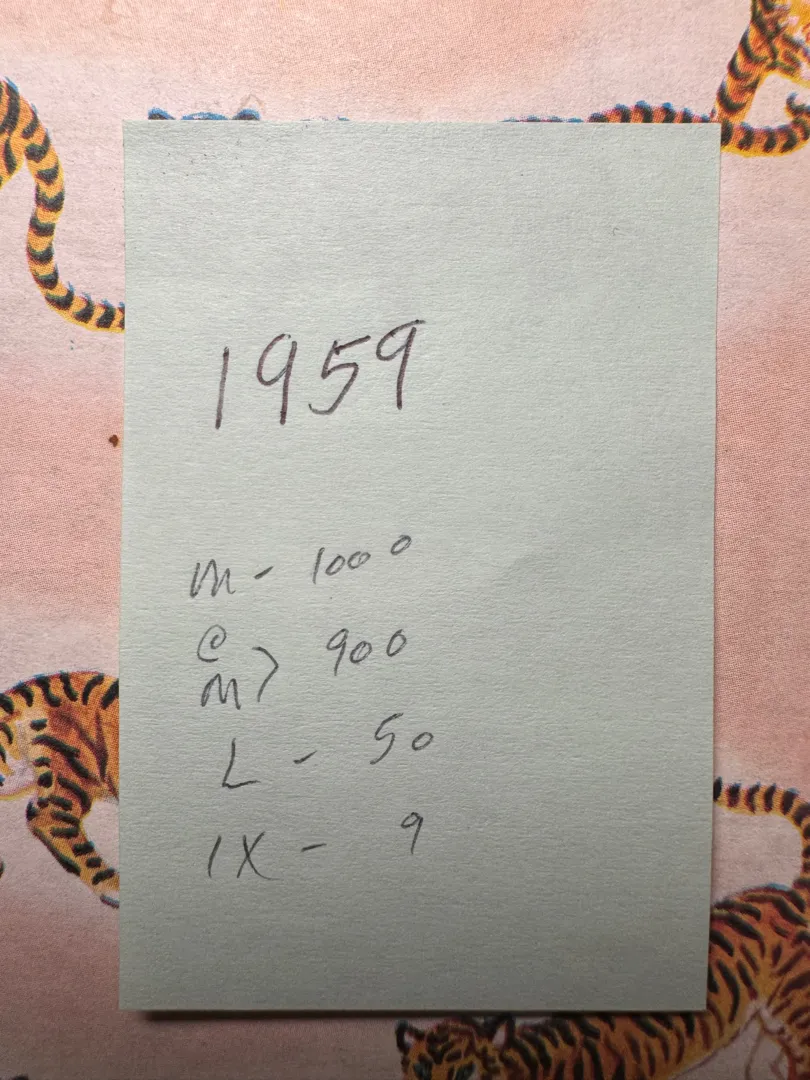 1959
M - 1000
C
M > 900
L - 50
IX - 9